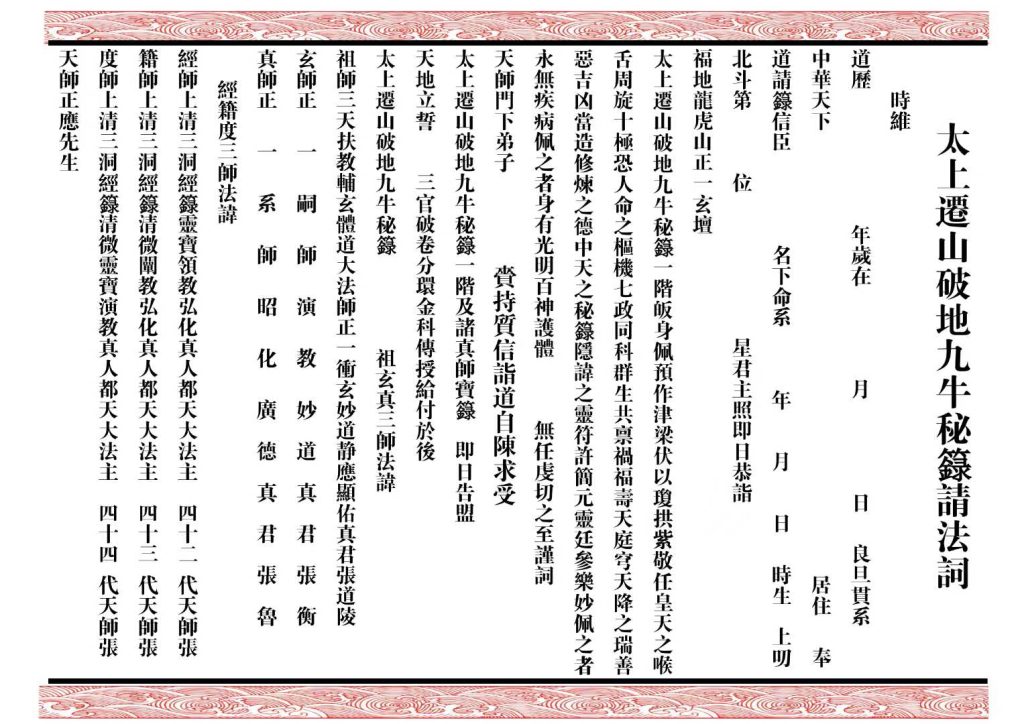 太上遷山破地九牛秘籙請法詞
時維
道歷 年歲在 月 日 良旦貫系
中華天下 居住 奉
道請籙信臣 名下命系 年 月 日 時生 上明
北斗第 位 星君主照即日恭詣
福地龍虎山正一玄壇
太上遷山破地九牛秘籙一階皈身佩預作津梁伏以瓊拱紫敬任皇天之喉
舌周旋十極恐人命之樞機七政同科群生共禀禍福壽天庭穹天降之瑞善
惡吉凶當造修煉之德中天之秘籙隱諱之靈符許簡元靈廷參樂妙佩之者
永無疾病佩之者身有光明百神護體 無任虔切之至謹詞
天師門下弟子 賫持質信詣道自陳求受
太上遷山破地九牛秘籙一階及諸真師寶籙 即日告盟
天地立誓 三官破卷分環金科傳授給付於後
太上遷山破地九牛秘籙 祖玄真三師法諱
祖師三天扶教輔玄體道大法師正一衝玄妙道静應顯佑真君張道陵
玄師正一嗣師演教妙道真君張衡
真師正一系師昭化廣德真君張魯
經籍度三師法諱
經師上清三洞經籙靈寶領教弘化真人都天大法主 四十二代天師張
籍師上清三洞經籙清微闡教弘化真人都天大法主 四十三代天師張
度師上清三洞經籙清微靈寶演教真人都天大法主 四十四代天師張
天師正應先生